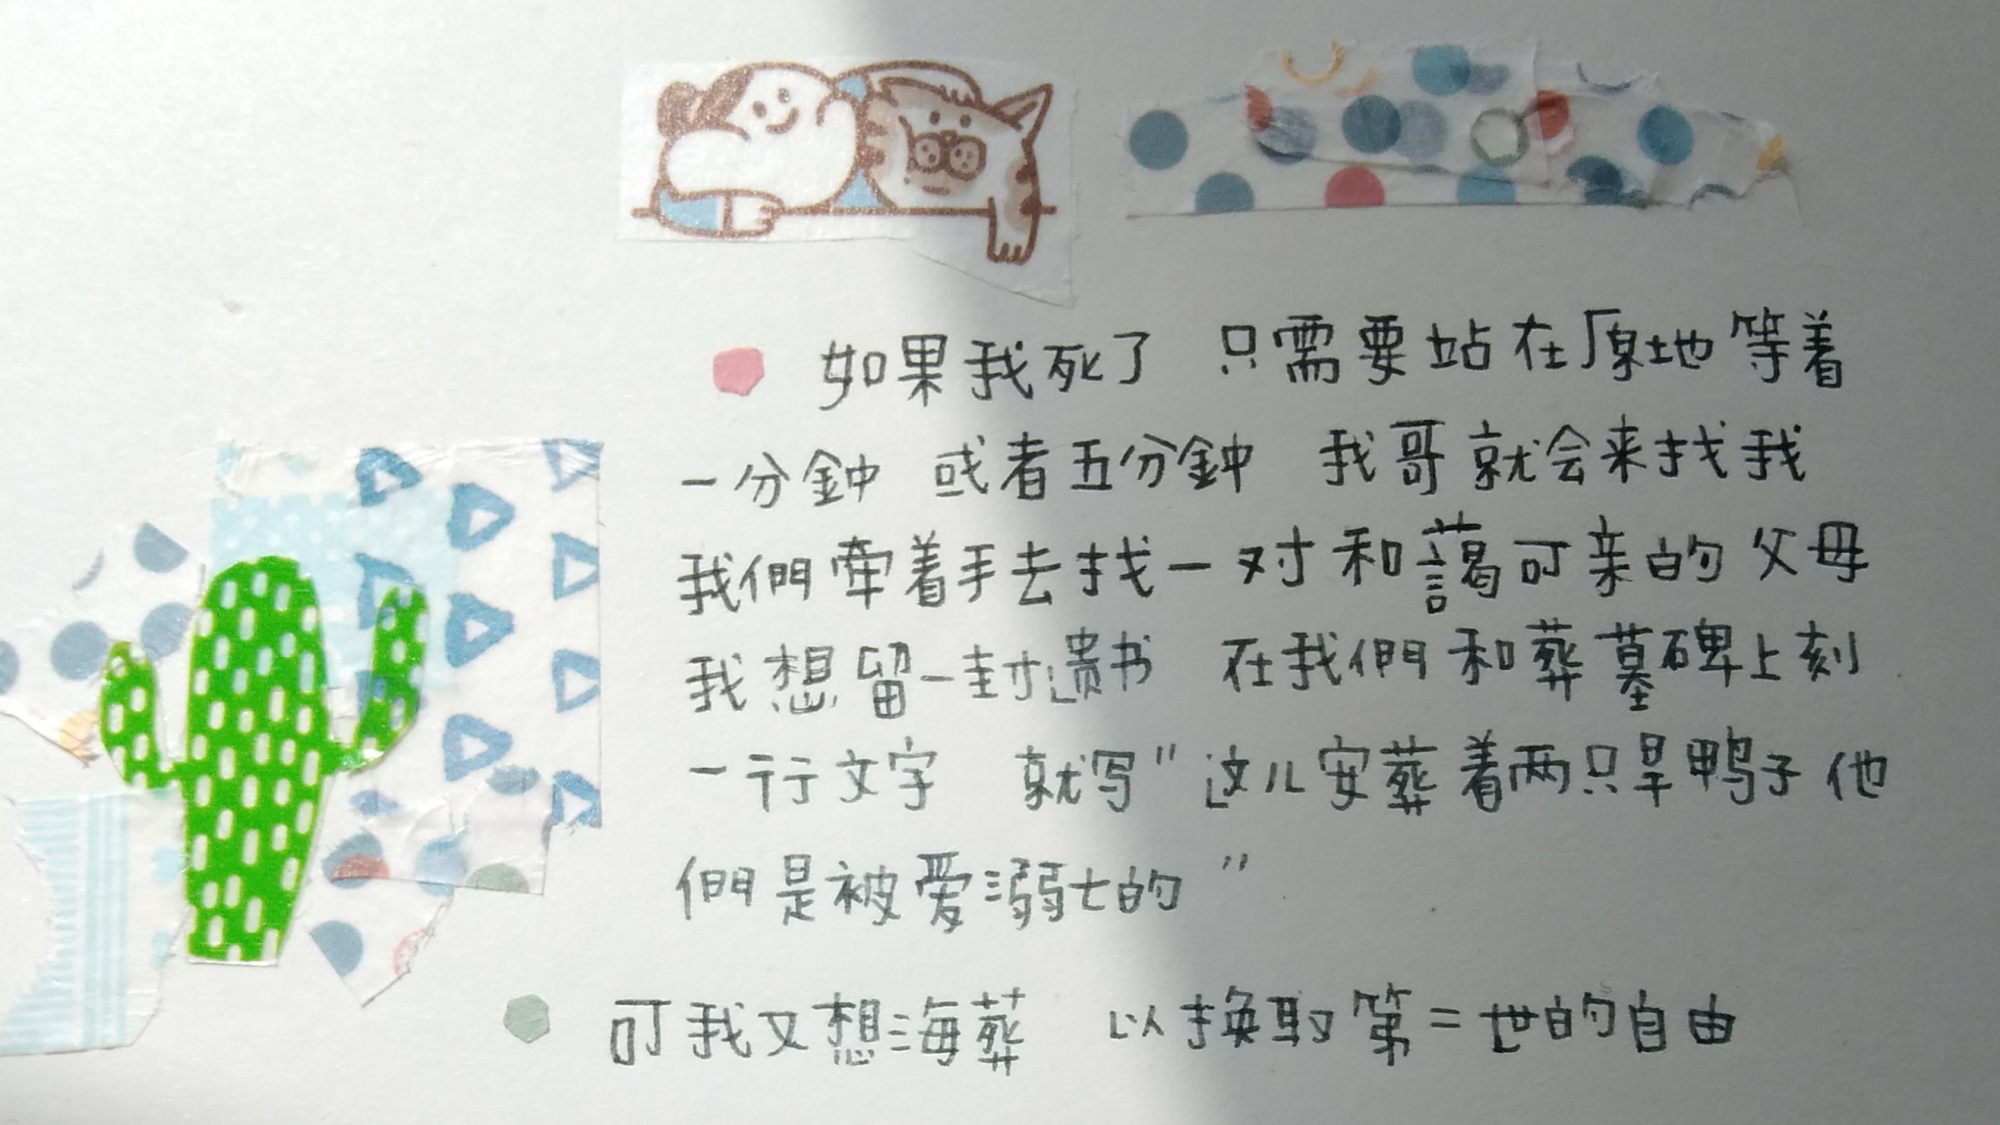 如果我死了 只需要站在原地等着
一分鐘 或者五分鐘 我哥就会来找我
我們牵着手去找一对和藹可亲的父母
我想留一封遗书 在我們和葬墓碑上刻
一行文字 就写"这儿安葬着两只旱鸭子他
們是被爱溺亡的"
可我又想海葬 以换取第二世的自由